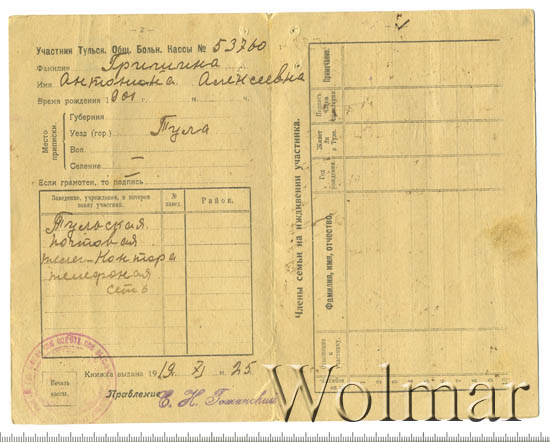 — 2 —
Участник Тульск. Общ. Больн. Кассы № 53760
Фамилия Гришина
Имя Антонина Алексеевна
Время рождения 1901 г. м. ч.
Место приписки.
Губерния
Уезд (гор.) Тула
Вол.
Селение —
Если грамотен, то подпись —
Заведение, учреждение, в котором занят участник.
№ завед.
Район.
Тульская
почтовая
телег-Контора
телефоная
сеть
Книжка выдана 1919. XI м. 25
Печать кассы.
Правление
Члены семьи на иждивении участника.
Фамилия, имя, отчество,
Год рождения.
Живет ли в Туле.
Примечание.
1
2
3
4
5
6
7
8
9
10
Wolmar